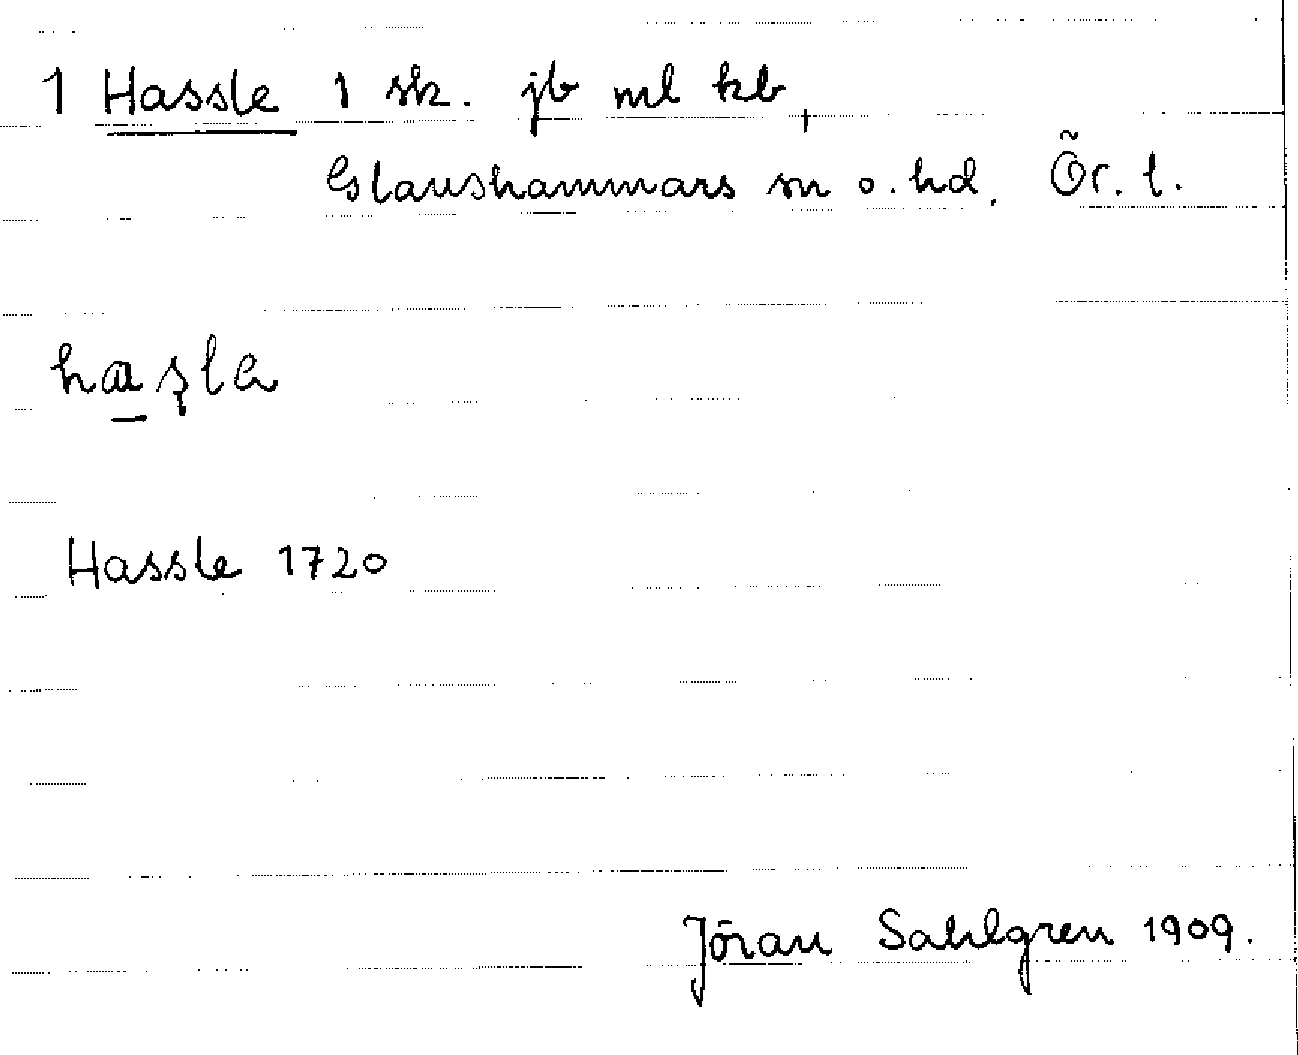 1 Hassle 1 sk. jb ml kb,
Glanshammars sn o. hd. Ör. l.
hasla
Hassle 1720
Jöran Sahlgren 1909.